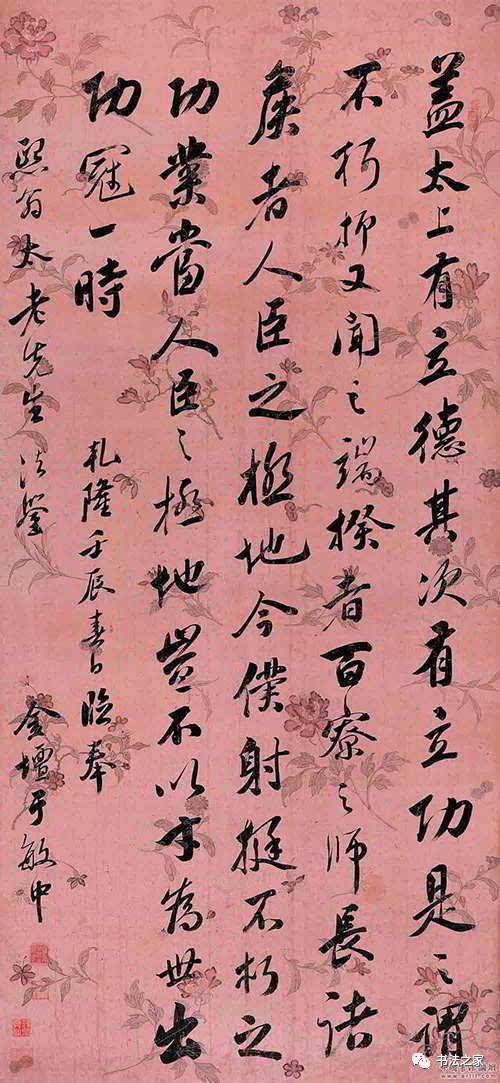 蓋太上有立德其次有立功是之謂
不朽抑又聞之端揆者百寮之師長諸
矦者人臣之極地今僕射挺不朽之
功業當人臣之極地豈不以才為世出
功冠一時
乹隆壬辰春日臨奉
熙翁太老先生法鑒
金壇于敏中
书法之家